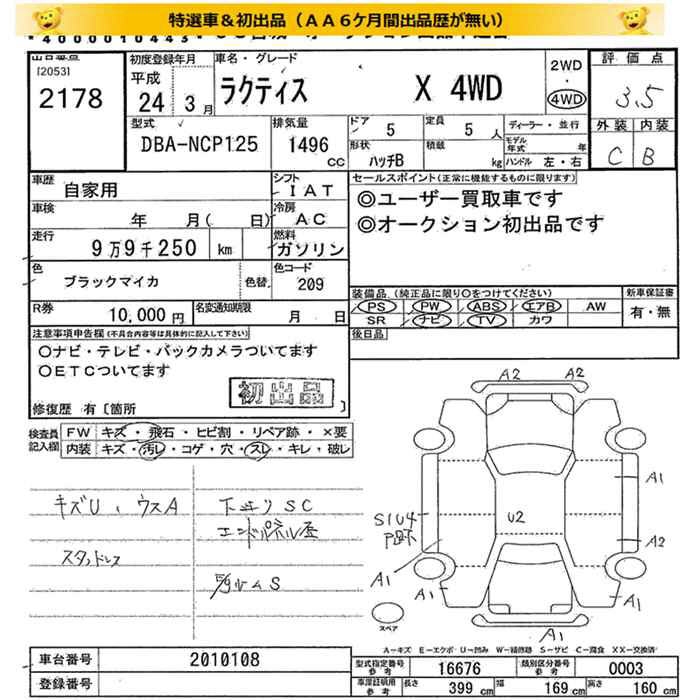 特選車＆初出品（ＡＡ６ケ月間出品歴が無い）
出品番号
[2053]
2178
初度登録年月
平成
24年 3月
車名・グレード
ラクティス X 4WD
2WD
・
4WD
評価点
3.5
外装 内装
C B
型式
DBA-NCP125
排気量
1496 CC
ドア 5
定員 5 人
形状 ハッチB
積載 kg
ディーラー・並行
モデル年式 年
ハンドル 左・右
車歴 自家用
シフト IAT
セールスポイント(正常に機能するものに限ります)
◎ユーザー買取車です
◎オークション初出品です
車検 年 月( 日)
冷房 AC
走行 9万9千250 km
燃料 ガソリン
色 ブラックマイカ
色替
色コード 209
装備品 (純正品に限り○をつけてください)
PS PW ABS エアB AW
SR ナビ TV カワ
新車保証書
有・無
R券 10,000 円
名変通知期限 月 日
後日品
注意事項申告欄(不具合内容等は具体的に記入して下さい)
○ナビ・テレビ・バックカメラついてます
○ETCついてます
初出品
修復歴 有〔箇所 〕
検査員記入欄
FW キズ・飛石・ヒビ割・リペア跡・×要
内装 キズ・汚レ・コゲ・穴・スレ・キレ・破レ
キズU、ウスA
スタッドレス
下廻りSC
A2 A2
A1
A2
A1
A1
A1
U2
S1U4
スペア
A－キズ E－エクボ U－凹み W－補修跡 S－サビ C－腐食 XX－交換済
車台番号 2010108
登録番号
型式指定番号 参考 16676
類別区分番号 参考 0003
車庫証明用 参考 長さ 399 cm 幅 169 cm 高さ 160 cm